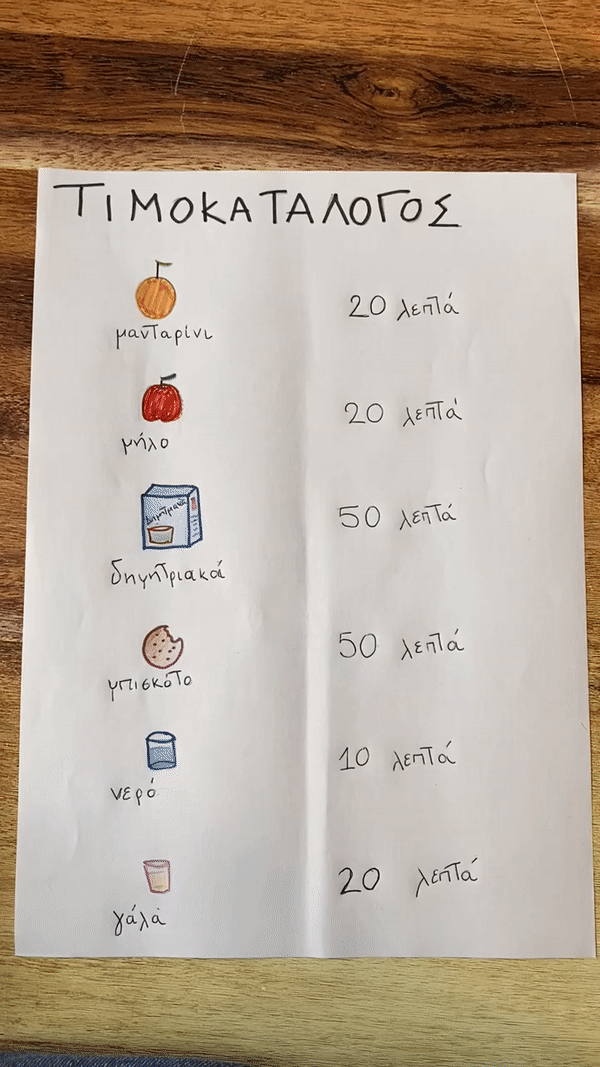 ΤΙΜΟΚΑΤΑΛΟΓΟΣ
μανταρίνι 20 λεπτά
μήλο 20 λεπτά
Δημητριακά
δημητριακά 50 λεπτά
μπισκότο 50 λεπτά
νερό 10 λεπτά
γάλα 20 λεπτά